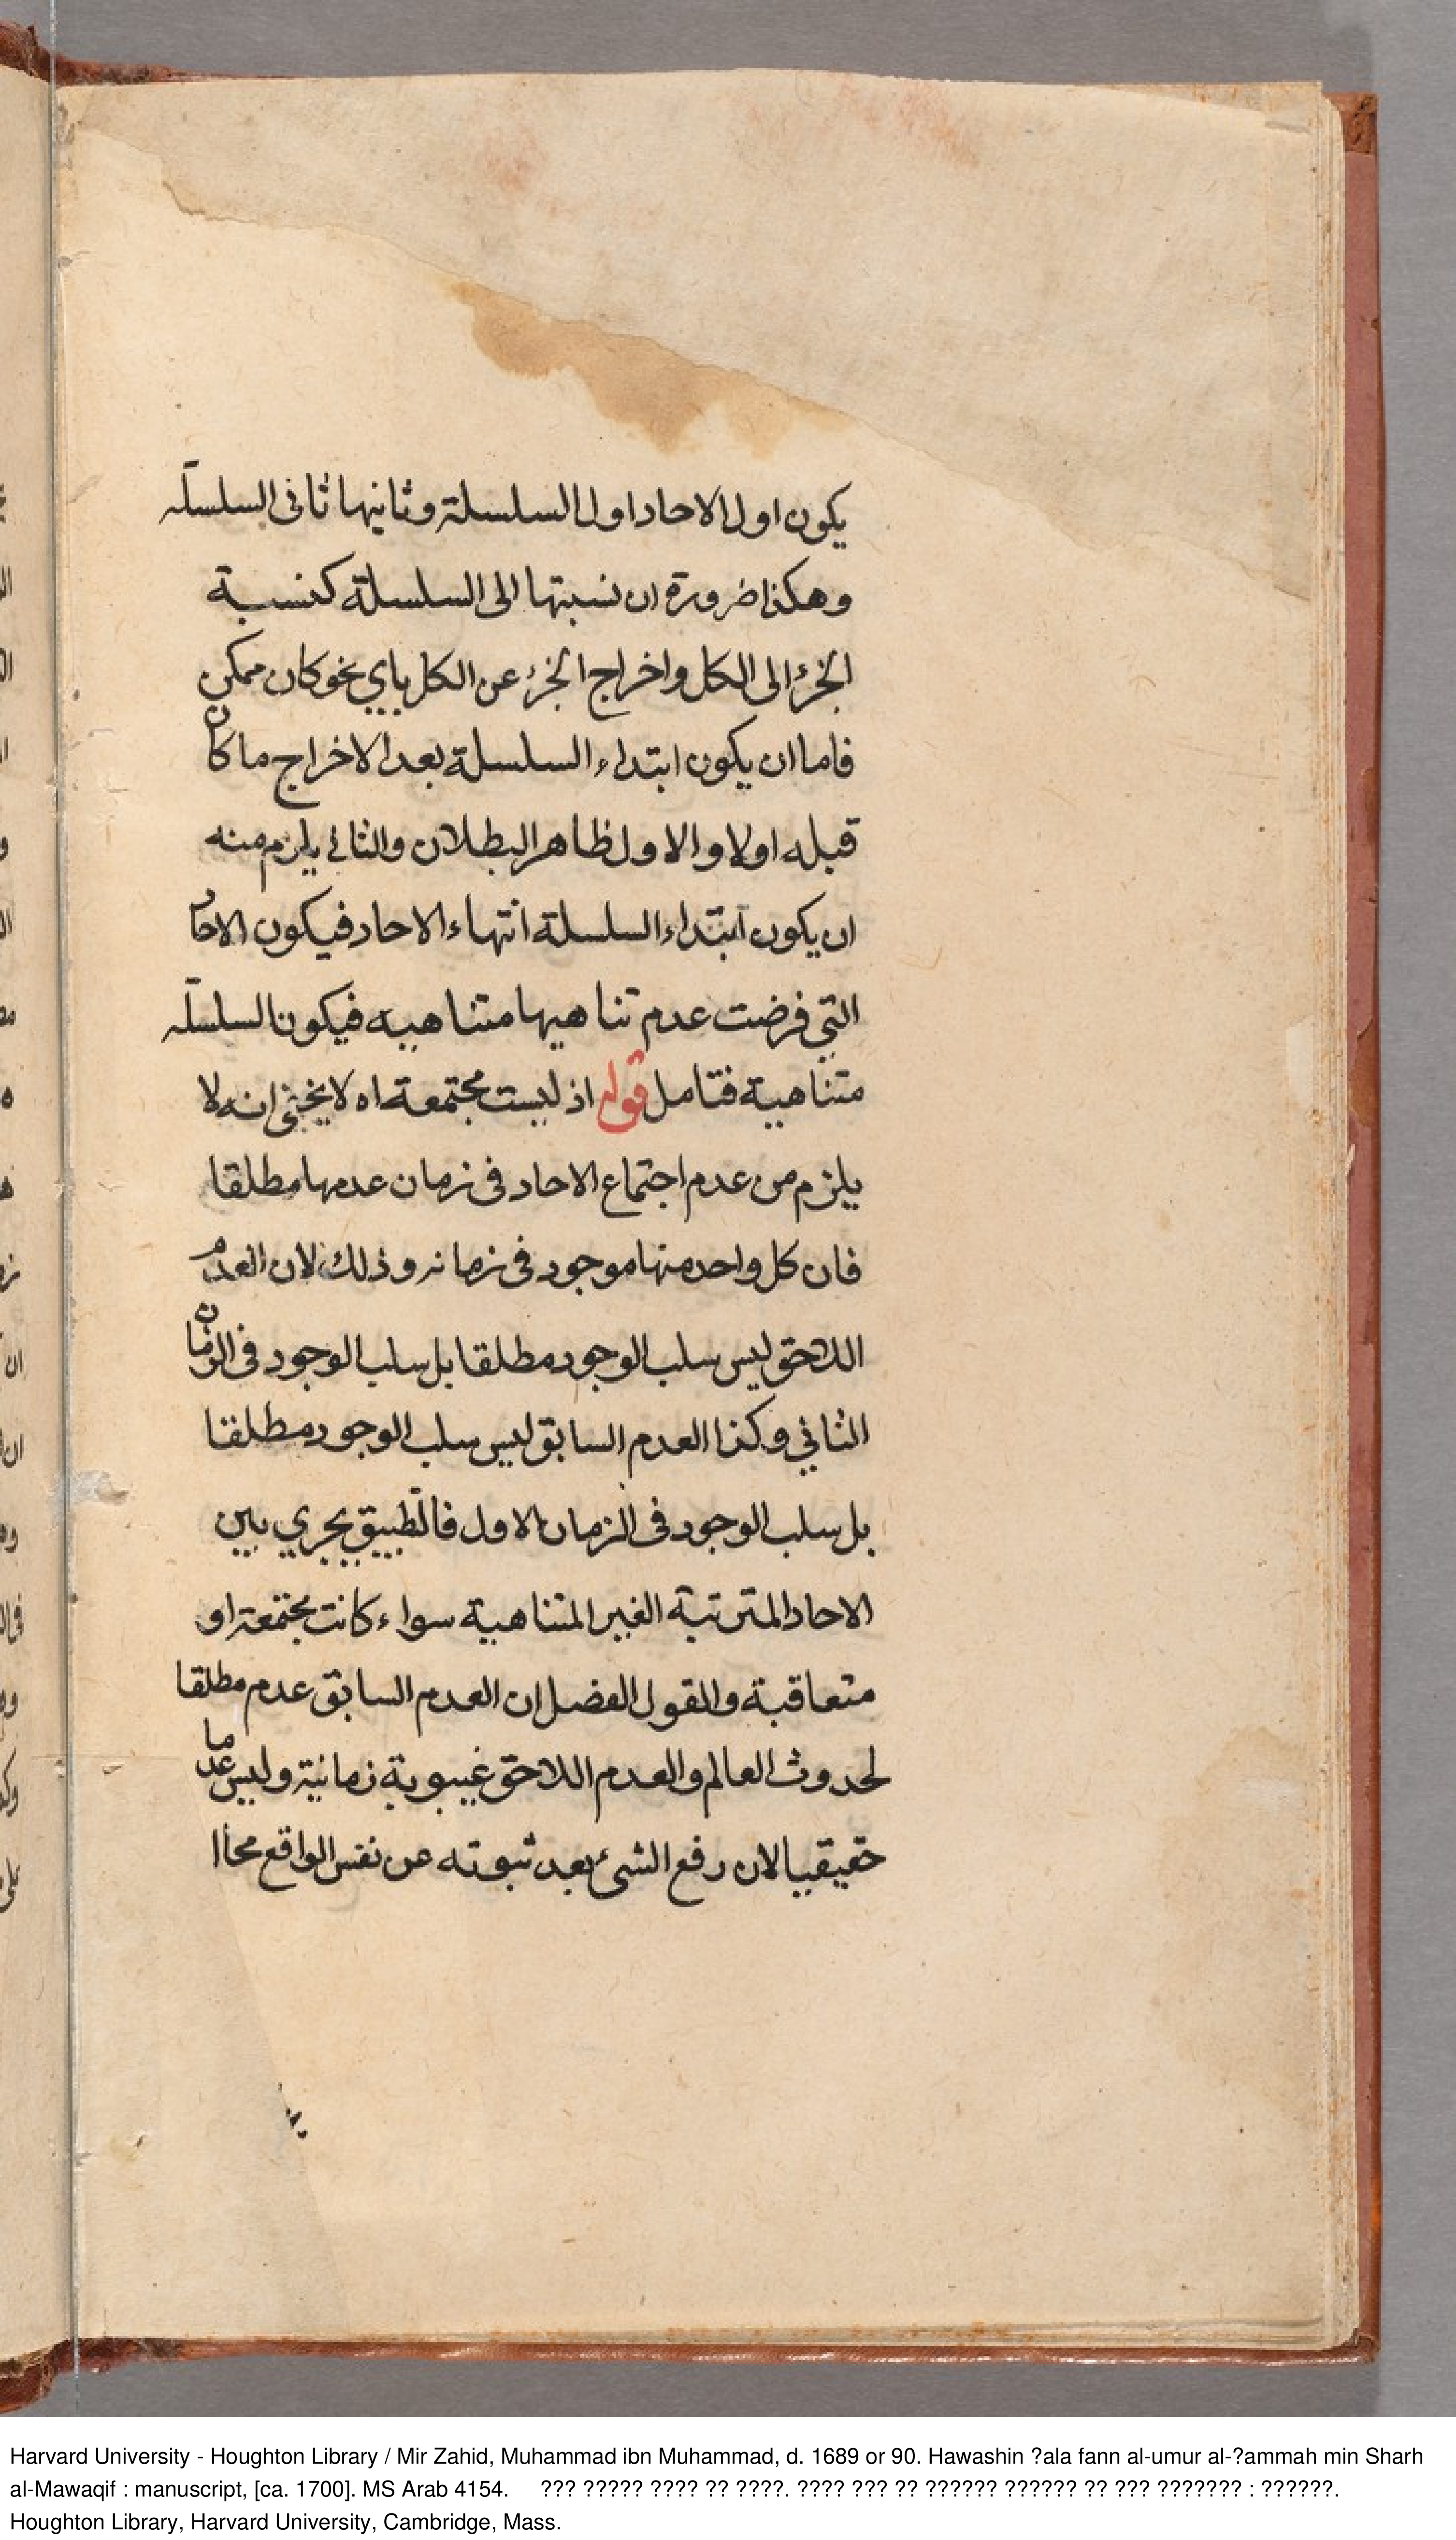 يكون اول الاحاد اول السلسلة وثانيها ثانى السلسلة
وهكذا ضرورة ان نسبتها الى السلسلة كنسبة
الجزء الى الكل واخراج الجزء عن الكل باي نحو كان ممكن
فاما ان يكون ابتداء السلسلة بعد الاخراج ما كان
قبله اولا والاول ظاهر البطلان والثاني يلزم منه
ان يكون ابتداء السلسلة انتهاء الاحاد فيكون الاحاد
التي فرضت عدم تناهيها متناهيه فيكون السلسلة
متناهية فتامل قوله اذ ليست مجتمعة اه لا يخفى انه لا
يلزم من عدم اجتماع الاحاد فى زمان عدمها مطلقا
فان كل واحد منها موجود فى زمانه وذلك لان العدم
اللاحق ليس سلب الوجود مطلقا بل سلب الوجود فى الزمان
الثاني وكذا العدم السابق ليس سلب الوجود مطلقا
بل سلب الوجود فى الزمان الاول فالتطبيق يجري بين
الاحاد المترتبة الغير المتناهية سواء كانت مجتمعة او
متعاقبة والقول الفصل ان العدم السابق عدم مطلقا
لحدوث العالم والعدم اللاحق غيبوبة زمانية وليس عدما
حقيقيا لان رفع الشيء بعد ثبوته عن نفس الواقع محال
Harvard University - Houghton Library / Mir Zahid, Muhammad ibn Muhammad, d. 1689 or 90. Hawashin ?ala fann al-umur al-?ammah min Sharh
al-Mawaqif : manuscript, [ca. 1700]. MS Arab 4154. ??? ????? ???? ?? ????. ???? ??? ?? ?????? ?????? ?? ??? ??????? : ??????.
Houghton Library, Harvard University, Cambridge, Mass.